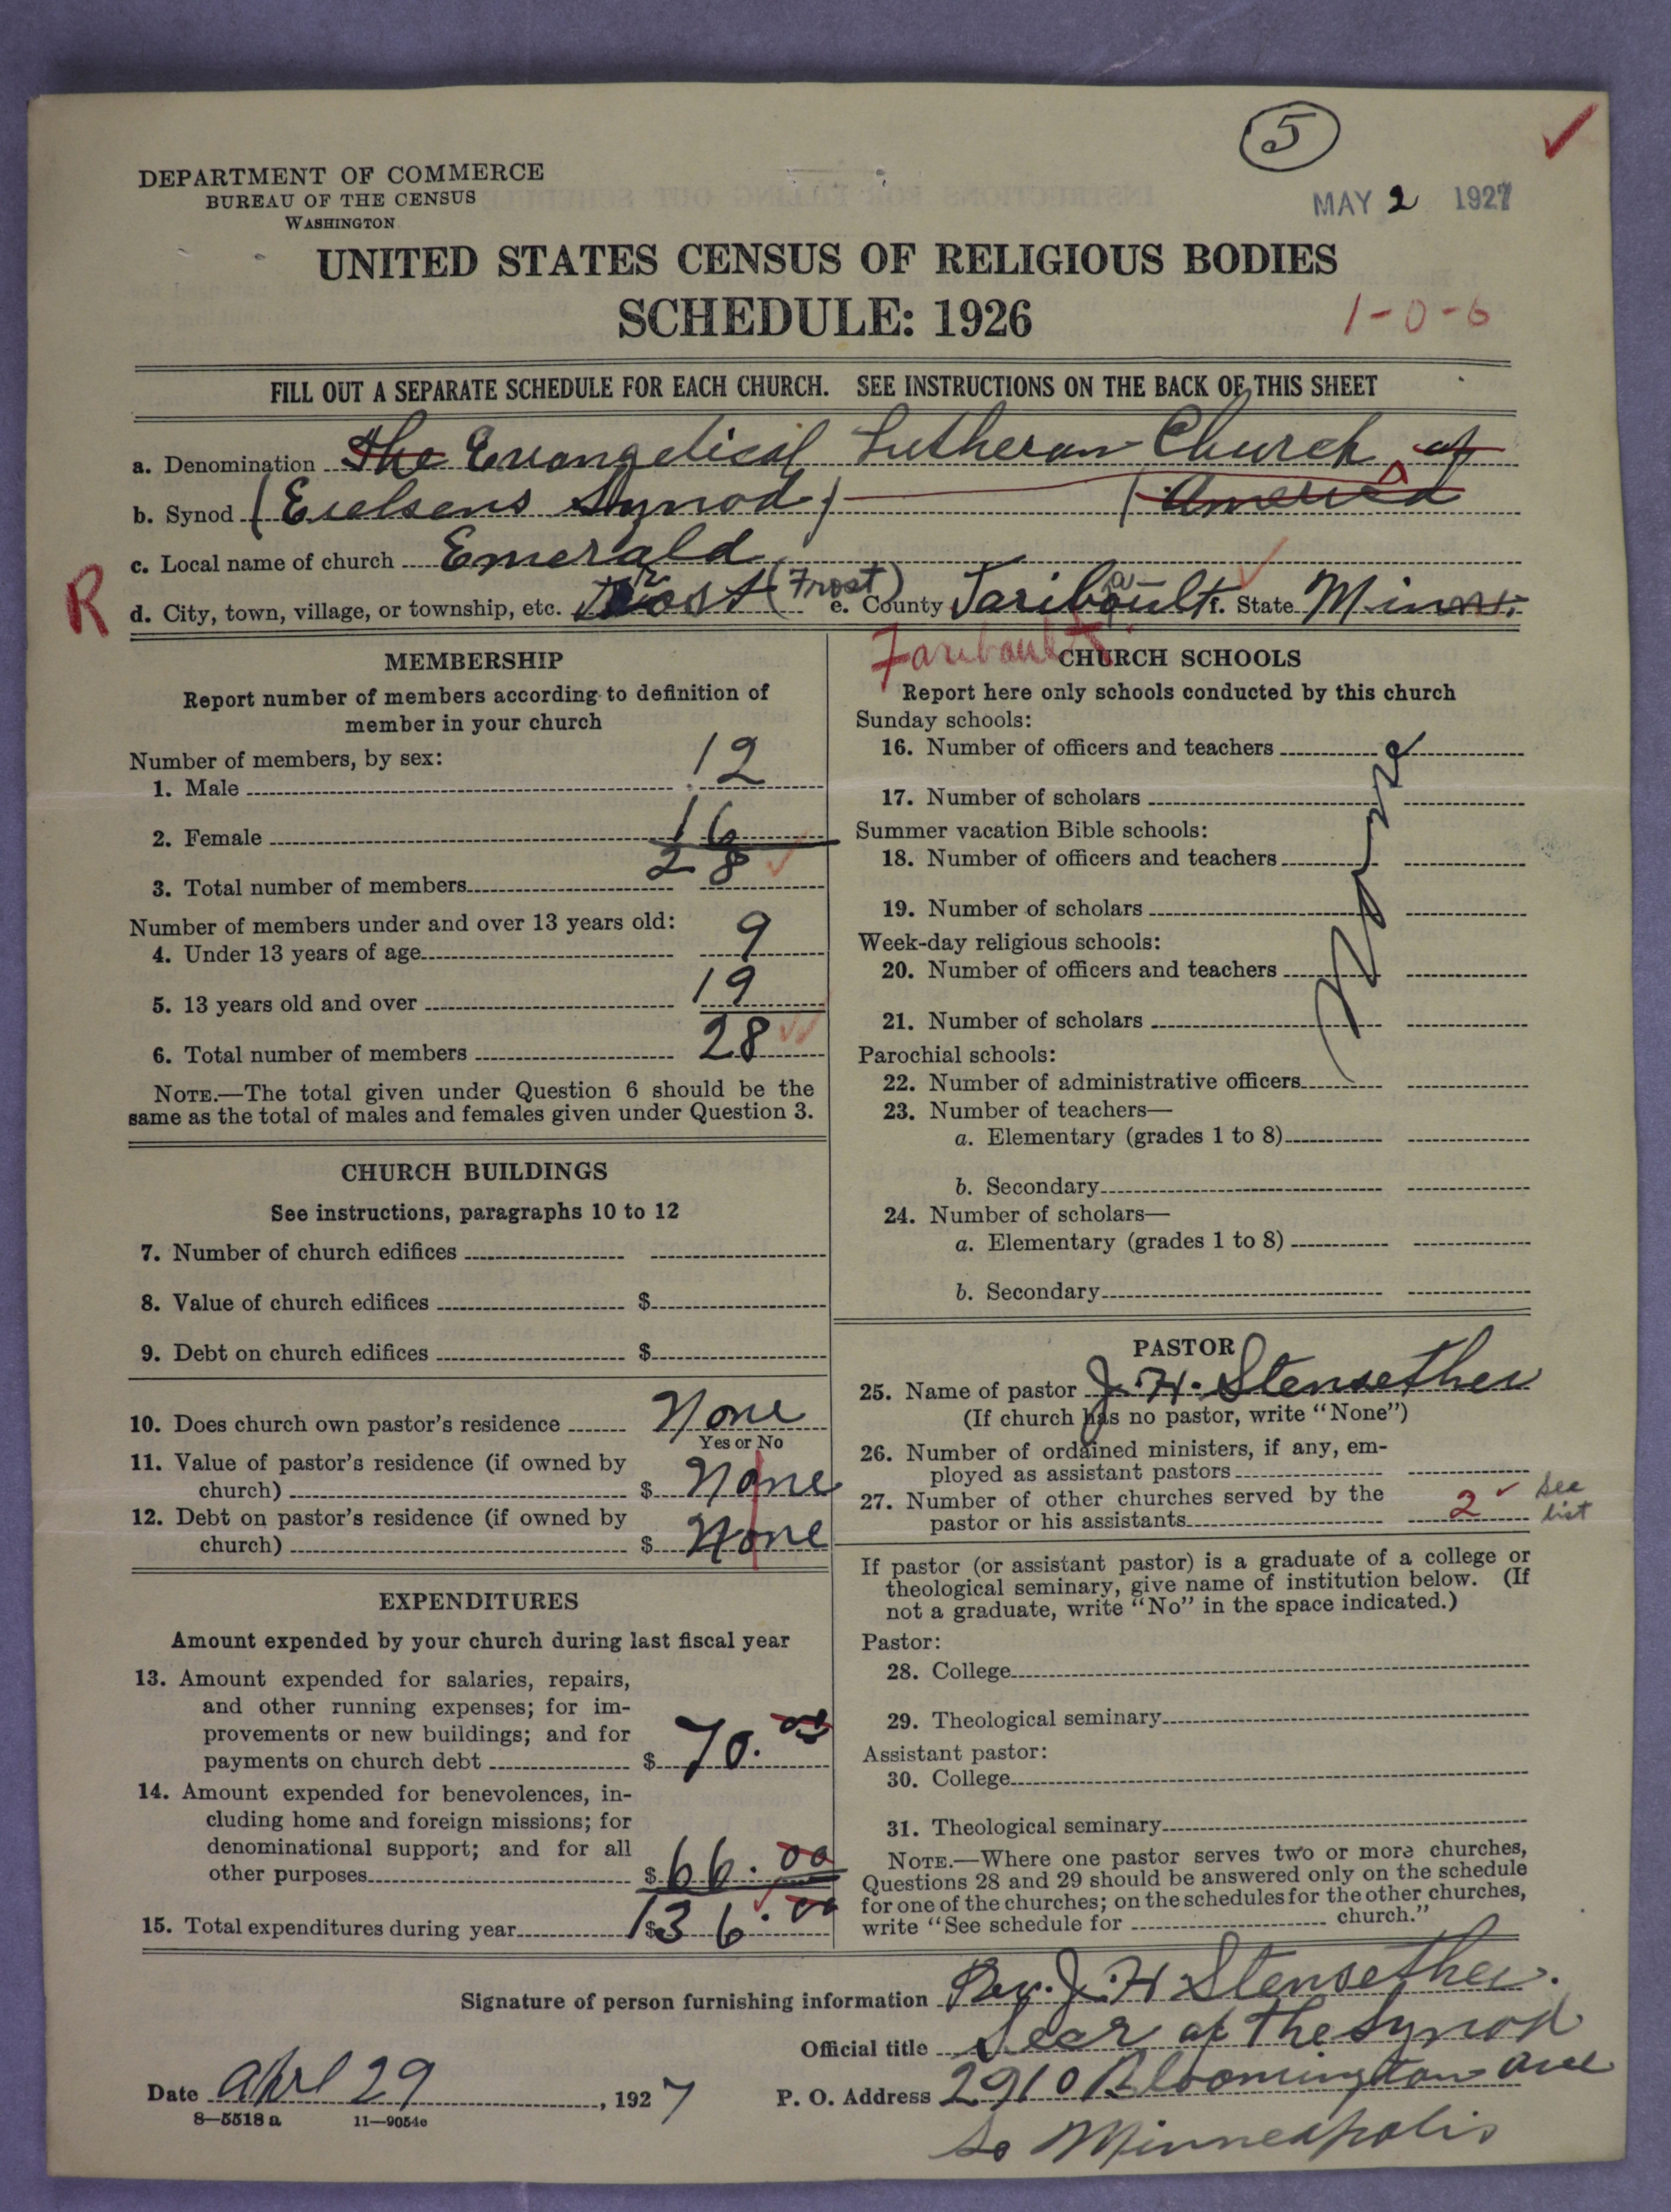 5
DEPARTMENT OF COMMERCE
BUREAU OF THE CENSUS
WASHINGTON
MAY 2 1927
UNITED STATES CENSUS OF RELIGIOUS BODIES
SCHEDULE: 1926
1-0-6
FILL OUT A SEPARATE SCHEDULE FOR EACH CHURCH. SEE INSTRUCTIONS ON THE BACK OF THIS SHEET
a. Denomination The Evangelical Lutheran Church of
b. Synod (Eielsens Synod) (America
c. Local name of church Emerald
R d. City, town, village, or township, etc. Frost (Frost) e. County Faribault f. State Minn.
Faribault
MEMBERSHIP
Report number of members according to definition of
member in your church
Number of members, by sex:
1. Male 12
2. Female 16
3. Total number of members 28
Number of members under and over 13 years old:
4. Under 13 years of age 9
5. 13 years old and over 19
6. Total number of members 28
NOTE.—The total given under Question 6 should be the
same as the total of males and females given under Question 3.
CHURCH BUILDINGS
See instructions, paragraphs 10 to 12
7. Number of church edifices
8. Value of church edifices $
9. Debt on church edifices $
10. Does church own pastor's residence None
Yes or No
11. Value of pastor's residence (if owned by
church) $ None
12. Debt on pastor's residence (if owned by
church) $ None
EXPENDITURES
Amount expended by your church during last fiscal year
13. Amount expended for salaries, repairs,
and other running expenses; for im-
provements or new buildings; and for
payments on church debt $ 70.00
14. Amount expended for benevolences, in-
cluding home and foreign missions; for
denominational support; and for all
other purposes $ 66.00
15. Total expenditures during year $ 136.00
CHURCH SCHOOLS
Report here only schools conducted by this church
Sunday schools:
16. Number of officers and teachers
17. Number of scholars
Summer vacation Bible schools:
18. Number of officers and teachers
19. Number of scholars
Week-day religious schools:
20. Number of officers and teachers
21. Number of scholars
None
Parochial schools:
22. Number of administrative officers
23. Number of teachers—
a. Elementary (grades 1 to 8)
b. Secondary
24. Number of scholars—
a. Elementary (grades 1 to 8)
b. Secondary
PASTOR
25. Name of pastor J. H. Stensether
(If church has no pastor, write "None")
26. Number of ordained ministers, if any, em-
ployed as assistant pastors
27. Number of other churches served by the
pastor or his assistants 2 see
list
If pastor (or assistant pastor) is a graduate of a college or
theological seminary, give name of institution below. (If
not a graduate, write "No" in the space indicated.)
Pastor:
28. College
29. Theological seminary
Assistant pastor:
30. College
31. Theological seminary
NOTE.—Where one pastor serves two or more churches,
Questions 28 and 29 should be answered only on the schedule
for one of the churches; on the schedules for the other churches,
write "See schedule for church."
Signature of person furnishing information Rev. J. H Stensether.
Official title Secr of the Synod
Date Aprl 29, 1927 P. O. Address 2910 Bloomington Ave
So Minneapolis
8—5518 a 11—9054c